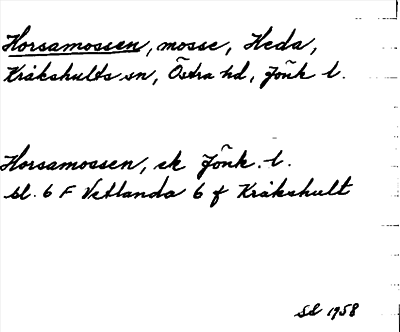 Horsamossen, mosse, Heda,
Kråkshults sn, Östra hd, Jönk l.
Horsamossen, ek Jönk. l.
bl. 6 F Vetlanda 6 f Kråkshult
Sd 1958